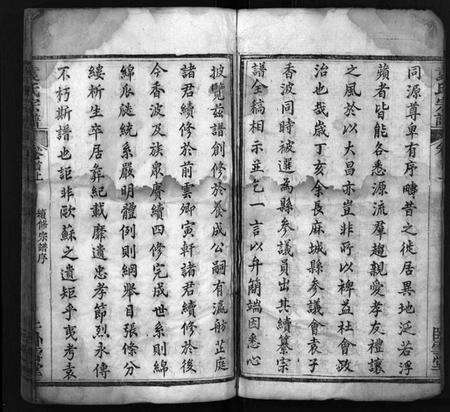 同源尊卑有序疇昔之徙居異地泛若浮
蘋者皆能各悉源流羣趨親愛孝友禮讓
之風於以大昌亦豈非所以裨益社會政
治也哉歲丁亥余長麻城縣參議會袁子
香波同時被選為縣參議員出其續纂宗
譜全稿相示並乞一言以弁簡端因悉心
披覽茲譜創修於養成公嗣有瀛舫芷庭
諸君續修於前雲卿寅軒諸君續修於後
今香波及族眾賡續四修完成世系則綿
綿瓜瓞統系嚴明體例則綱舉目張條分
縷析生卒居葬紀載靡遺忠孝節烈永傳
不朽斯譜也詎非歐蘇之遺矩乎爰考袁
袁氏宗譜
續修宗譜序